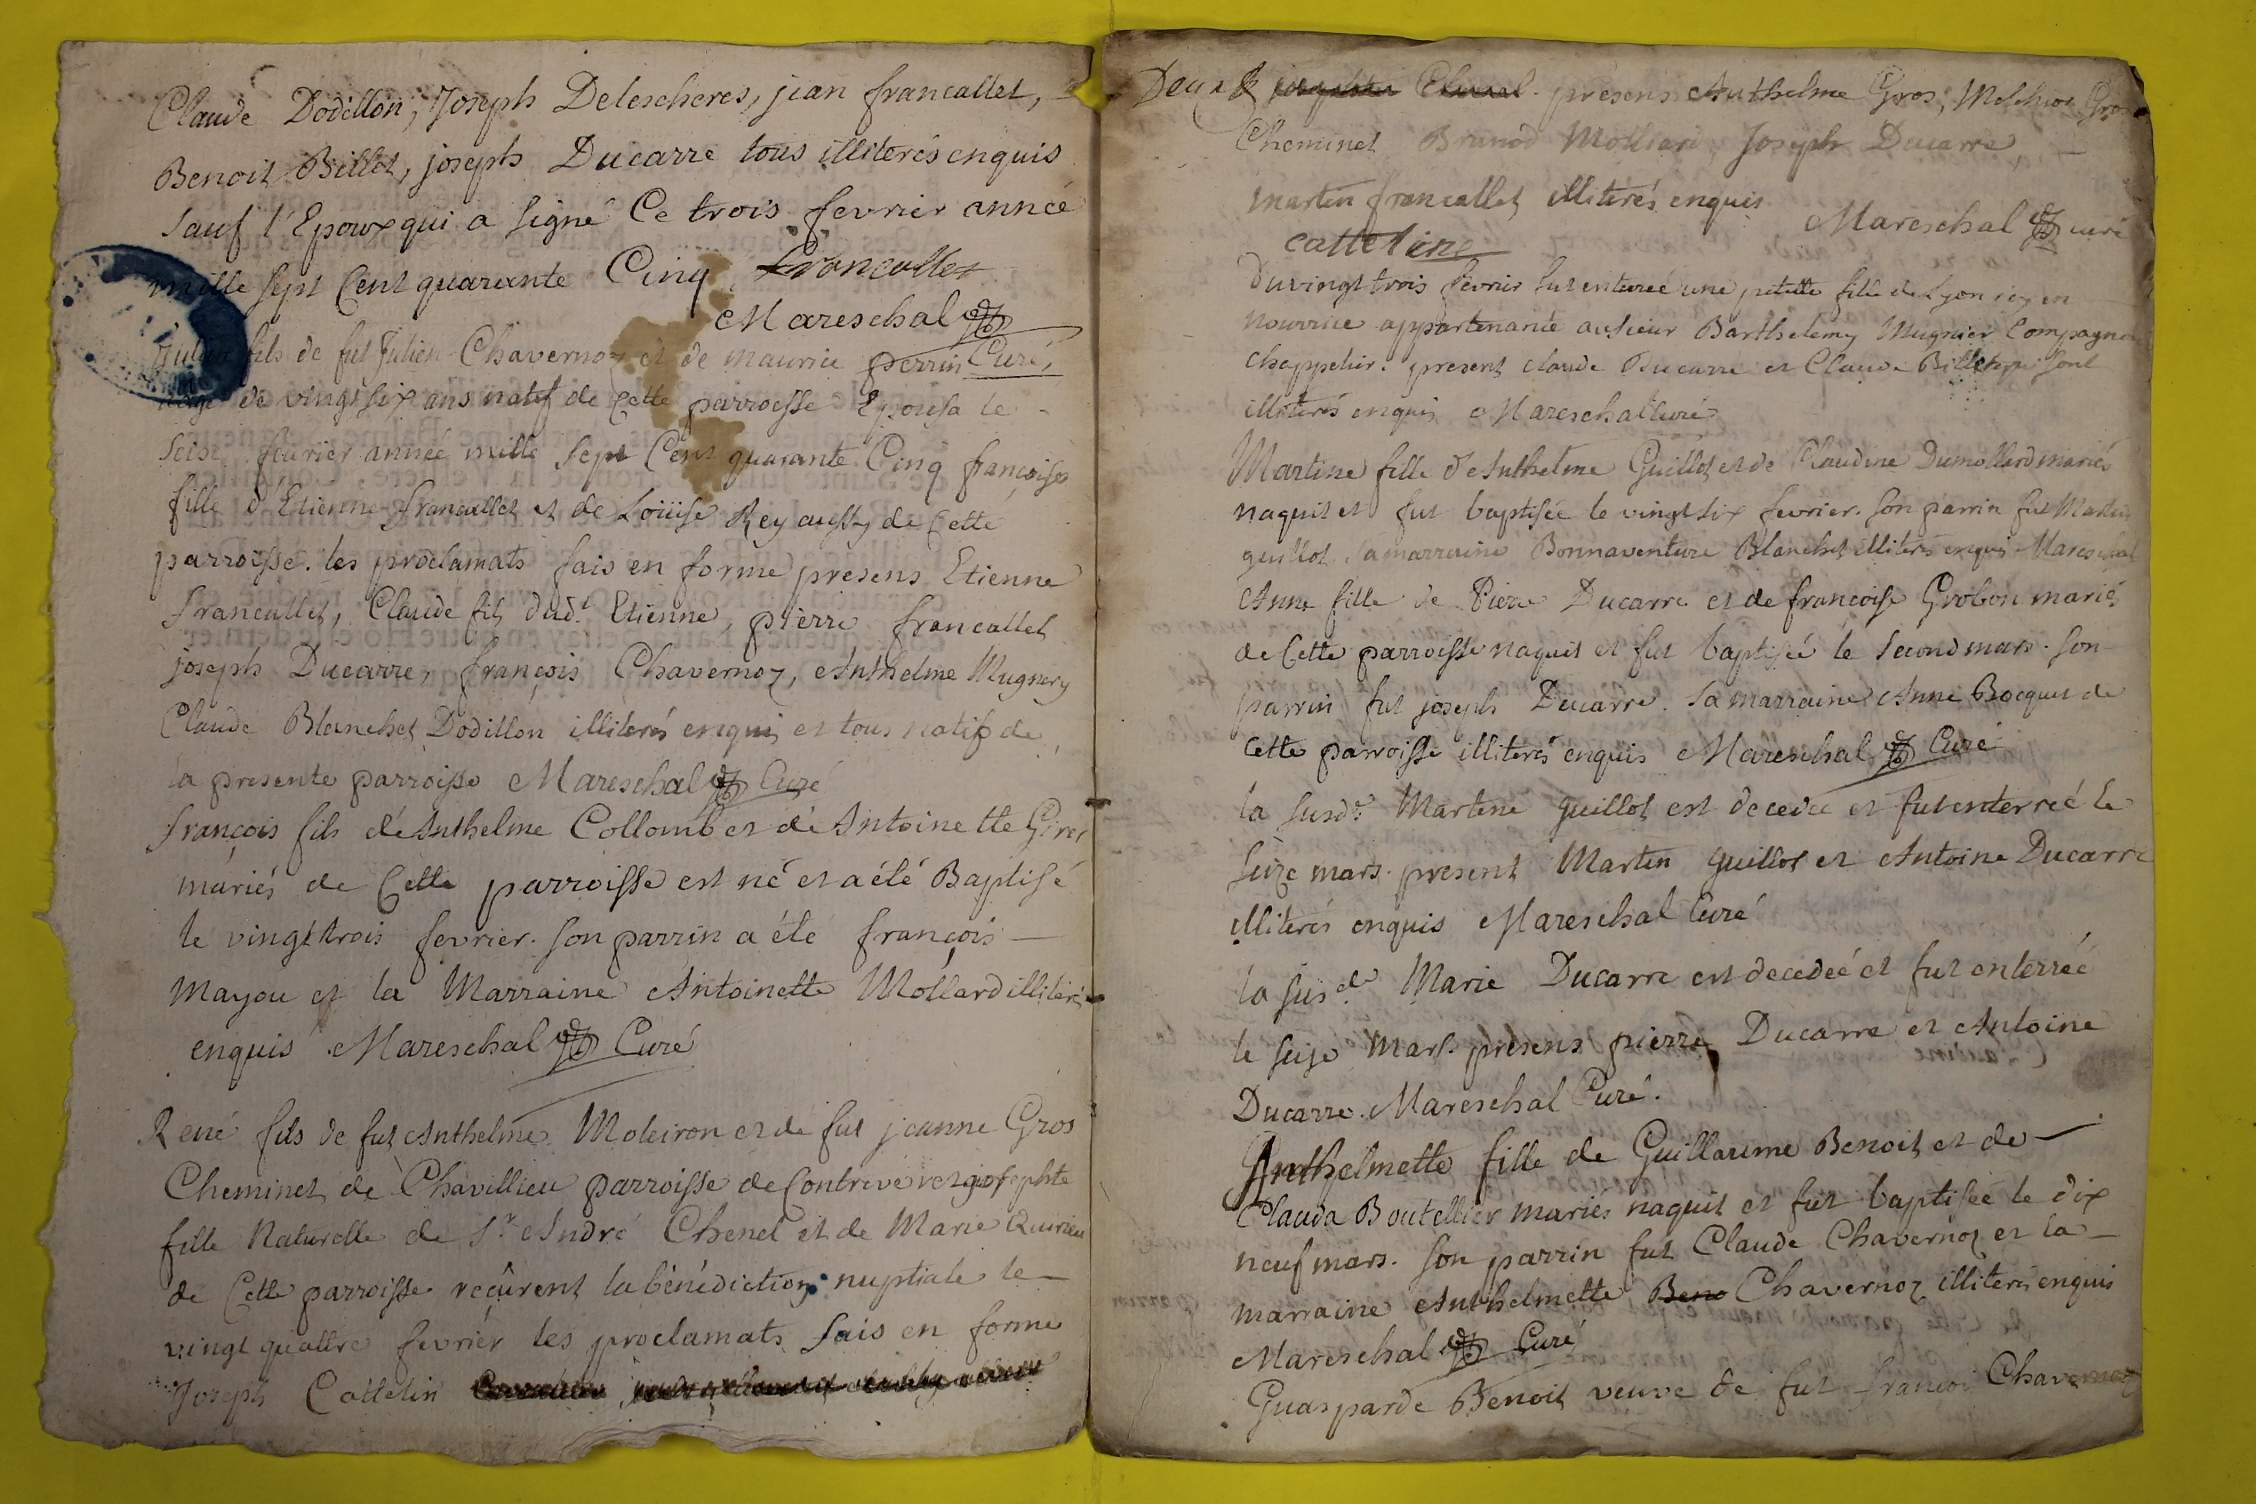 Claude Dodillon, Joseph Delescheres, jean francallet,
Benoit Billet, joseph Ducarre tous illiterés enquis
sauf l'Epoux qui a signé Ce trois fevrier année
mille sept Cent quarante Cinq francallet
Mareschal
Julien fils de fut Julien Chavernoz et de maurice perrin Curé,
agé de vingt six ans natif de Cette parroisse Epousa le
seise fevrier année mille sept Cent quarante Cinq françoise
fille d'Etienne francallet et de Loüise Rey aussy de Cette
parroisse. les proclamats fais en forme presens Etienne
francallet, Claude fils dud.t Etienne, pierre francallet
joseph Ducarre, françois Chavernoz, Anthelme Mugnery
Claude Blanchet Dodillon illiterés enquis et tous natifs de
la presente parroisse Mareschal Curé
françois fils de Anthelme Collomb et de Antoinette Giret
mariés de Cette parroisse est né et a été Baptisé
le vingt trois fevrier. son parrin a été françois
mayou et la Marraine Antoinette Mollard illiterés
enquis Mareschal Curé
René fils de fut Anthelme Moleiron et de fut jeanne Gros
Cheminet de Chavillieu parroisse de Contrevoz et josephte
fille Naturelle de S.r André Chenel et de Marie Quirieu
de Cette parroisse reçûrent la bénédiction nuptiale le
vingt quattre fevrier les proclamats fais en forme
Joseph Cattelin
Deux presens Anthelme Gros, Melchior Gros
Cheminet Brunod Mollard, Joseph Ducarre
martin francallet illiterés enquis
Mareschal curé
catteline
Du vingt trois fevrier fut enterreé une petitte fille de Lyon icy en
nourrice appartenante au sieur Barthelemy Mugnier Compagnon
chappelier. present claude Ducarre et Claude Billet qui sont
illiterés enquis Mareschal Curé
Martine fille d'Anthelme Guillot et de Claudine Dumollard mariés
naquit et fut baptisée le vingt six fevrier. son parrin fut Martin
guillot sa marraine Bonnaventure Blanchet illiterés enquis Mareschal
Anne fille de Pierre Ducarre et de francoise Grobon mariés
de Cette parroisse naquit et fut baptiseé le second mars. son
parrin fut joseph Ducarre. sa marraine Anne Bocquet de
Cette parroisse illiterés enquis Mareschal Curé
la susd.e Martine guillot est decedée et fut enterreé le
seize mars. present Martin guillot et Antoine Ducarre
illiterés enquis Mareschal Curé
la sus de Marie Ducarre est decedeé et fut enterreé
le seize mars. presens pierre Ducarre et Antoine
Ducarre. Mareschal Curé.
Anthelmette fille de Guillaume Benoit et de
Clauda Boutellier mariés naquit et fut baptisée le dix
neuf mars. son parrin fut Claude Chavernoz et la
marraine Anthelmette Beno Chavernoz illiterés enquis
Mareschal Curé
Guasparde Benoit veuve de fut françois Chavernoz